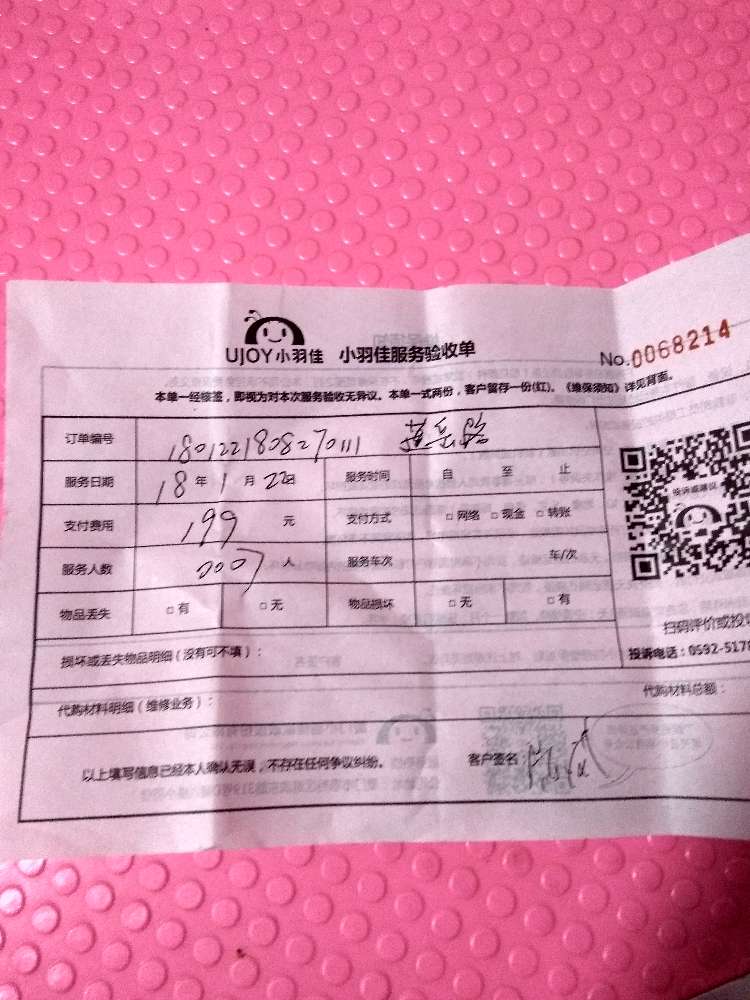 UJOY小羽佳 小羽佳服务验收单
No.0068214
本单一经核签，即视为对本次服务验收无异议。本单一式两份，客户留存一份(红)。《维保须知》详见背面。
订单编号 1801221808270111
服务日期 18年1月22日 服务时间 自 至 止
投诉或建议
支付费用 199元 支付方式 □网络 □现金 □转账
服务人数 0007人 服务车次 车/次
物品丢失 □有 □无 物品损坏 □无 □有
扫码评价或投
损坏或丢失物品明细（没有可不填）：
投诉电话：0592-5178
代购材料明细（维修业务）： 代购材料总额：
以上填写信息已经本人确认无误，不存在任何争议纠纷。 客户签名：